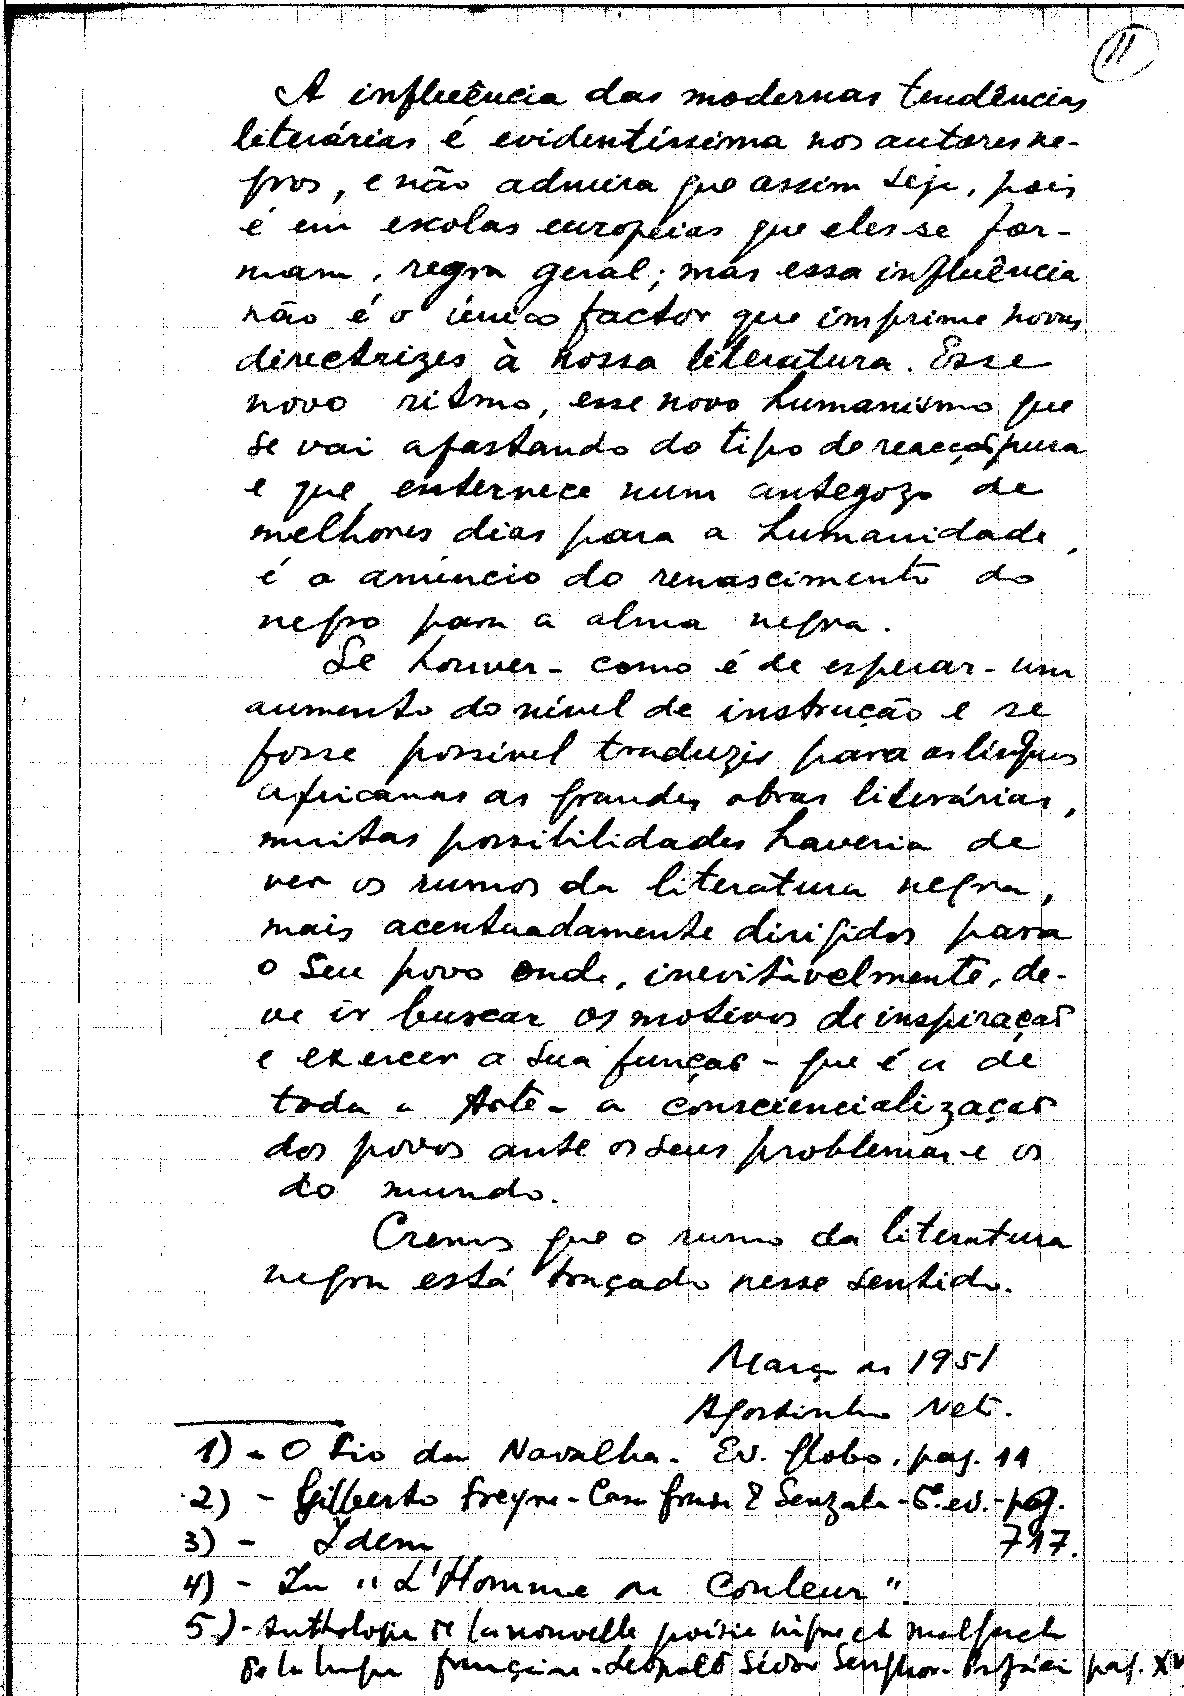 11
A influência das modernas tendências
literárias é evidentíssima nos autores ne-
gros, e não admira que assim seja, pois
é em escolas europeias que eles se for-
mam, regra geral; mas essa influência
não é o único factor que imprime novas
directrizes à nossa literatura. Esse
novo ritmo, esse novo humanismo que
se vai afastando do tipo de reacção pura
e que enternece num antegozo de
melhores dias para a humanidade,
é o anúncio do renascimento do
negro para a alma negra.
Se houver - como é de esperar - um
aumento do nível de instrução e se
fosse possível traduzir para as línguas
africanas as grandes obras literárias,
muitas possibilidades haveria de
ver os rumos da literatura negra,
mais acentuadamente dirigidos para
o seu povo onde, inevitàvelmente, de-
ve ir buscar os motivos de inspiração
e exercer a sua função - que é a de
toda a Arte - a consciencialização
dos povos ante os seus problemas e os
do mundo.
Cremos que o rumo da literatura
negra está traçado nesse sentido.
Março de 1951
Agostinho Neto.
1) - O Fio da Navalha - Ed. Globo, pag. 11
2) - Gilberto Freyre - Casa Grande & Senzala - 6ª ed. - pag.
3) - Idem 717.
4) - In "L'Homme de Couleur".
5) - Anthologie de la nouvelle poésie nègre et malgache
de la langue française - Léopold Sédar Senghor - Prefácio pag.